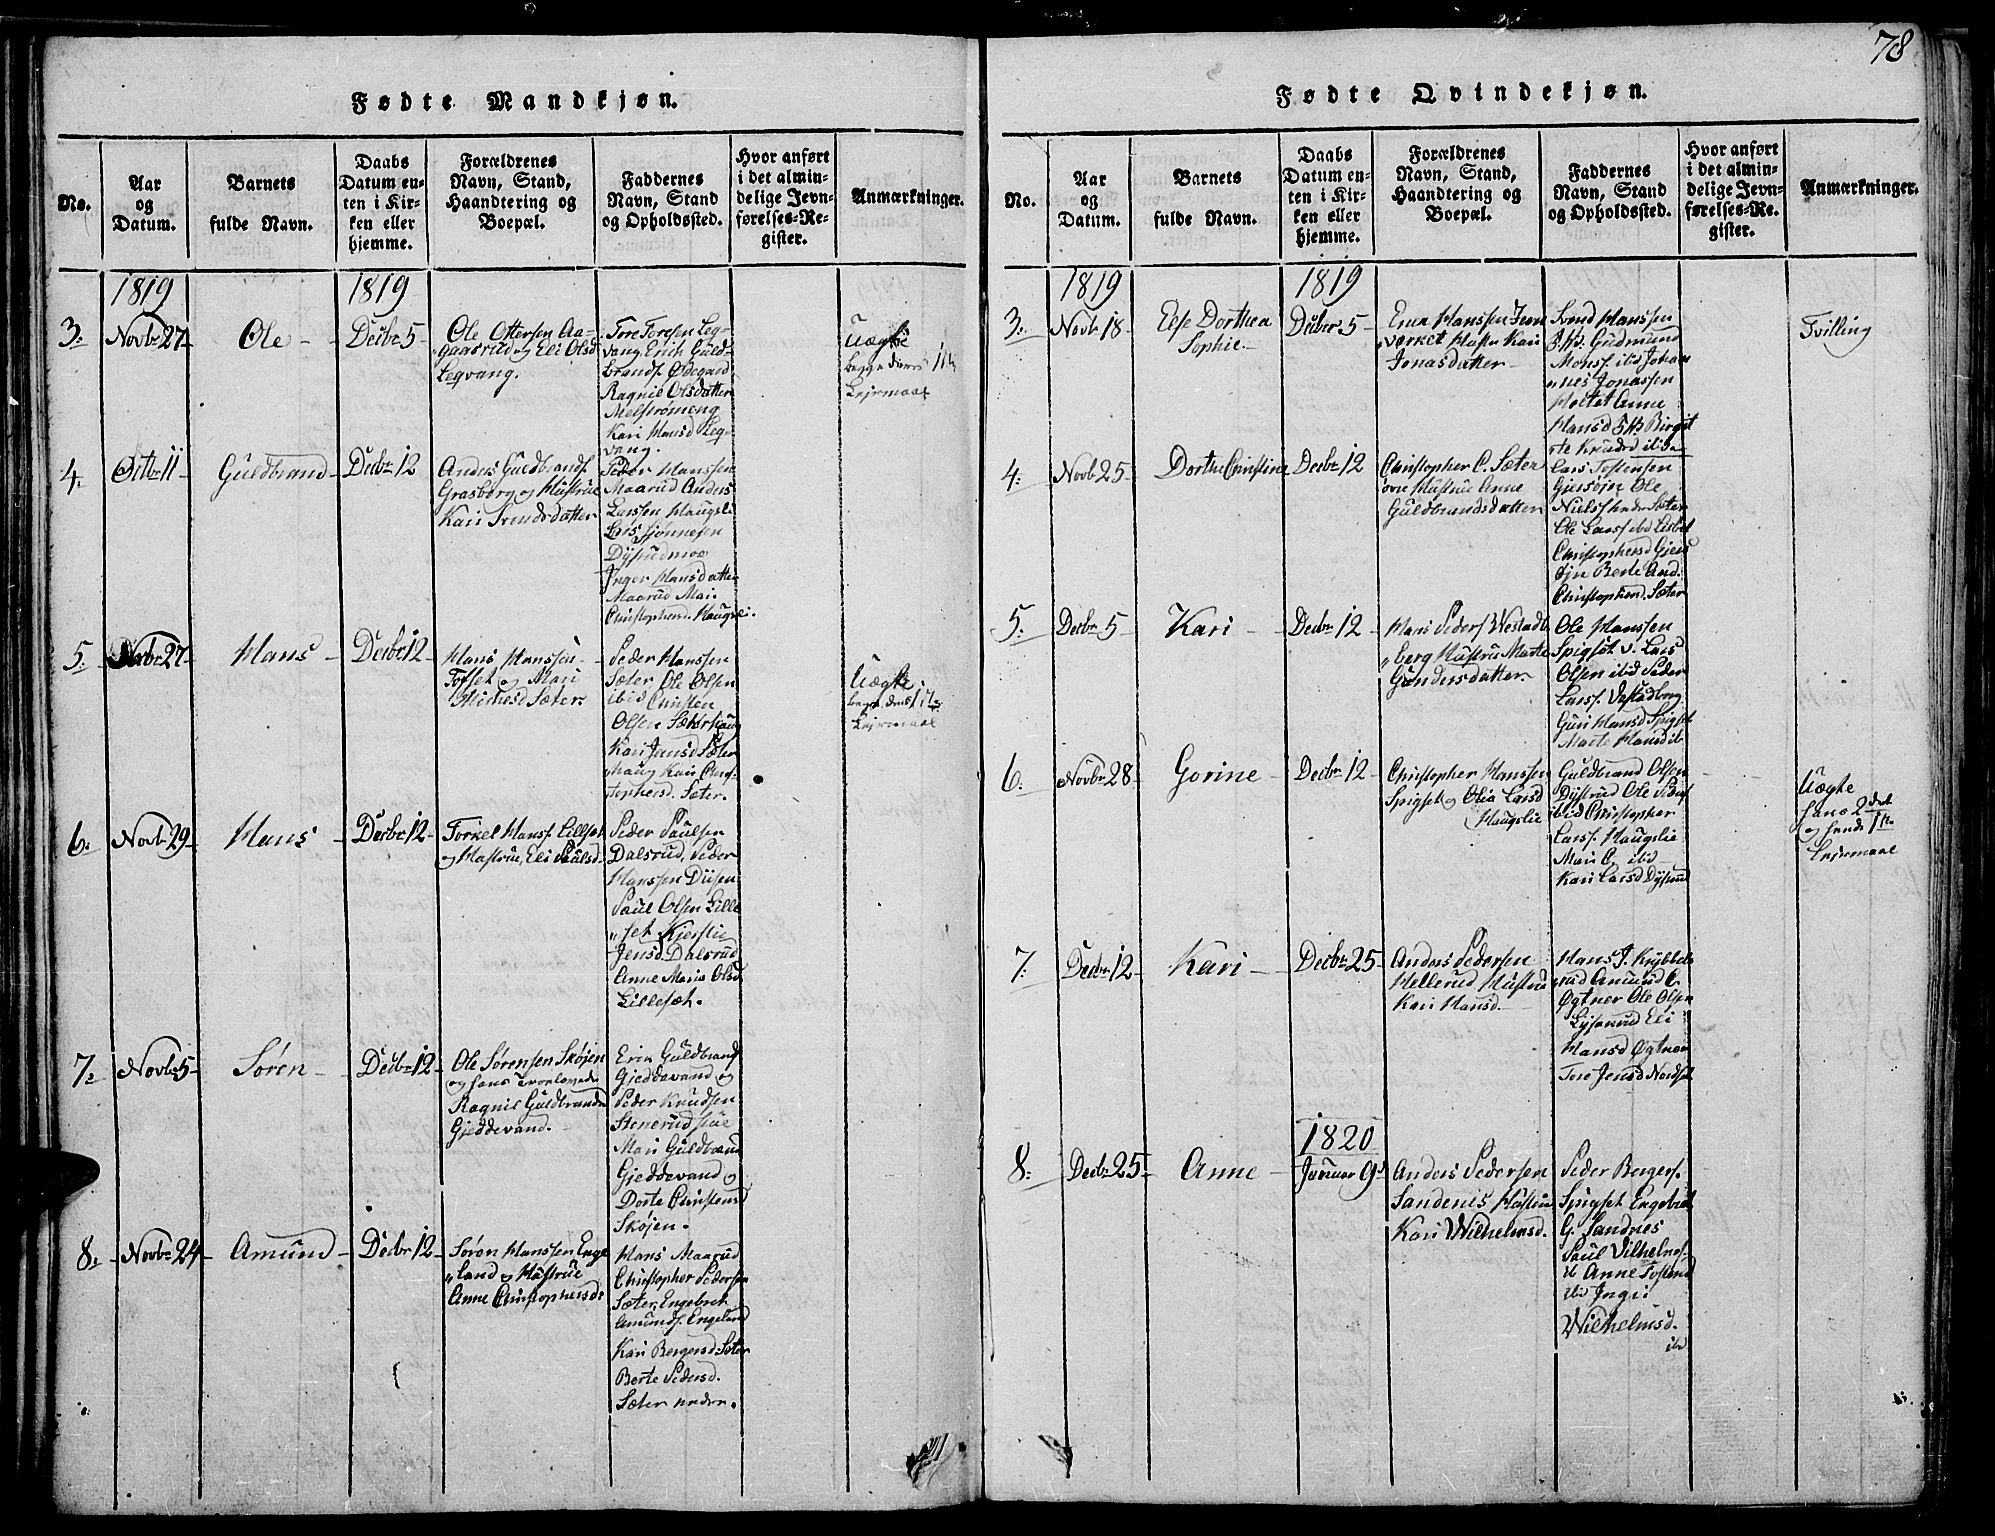 78
Fødte Mandkjøn.
No.
Aar
og
Datum.
Barnets
fulde Navn.
Daabs
Datum en-
ten i Kir-
ken eller
hjemme.
Forældrenes
Navn, Stand,
Haandtering og
Boepæl.
Faddernes
Navn, Stand
og Opholdssted.
Hvor anført
i det almin-
delige Jevn-
førelses-Re-
gister.
Anmærkninger.
1819
1819
3.
Novbr 27
Ole
Decbr 5
Ole Ottersen Aa-
gaasrud og Eli Olsd
Leqvang.
Tore Toresen Leq-
vang Erich Guld-
brands. Ødegaard
Ragnil Olsdatter
Melstrømeng
Kari Hansd Leq-
vang.
Uægte
begge deres 1te
Lejermaal
4.
Octbr 11
Guldbrand
Decbr 12
Anders Guldbrands.
Grasberg og Hustrue
Kari Svendsdatter
Peder Hanssen
Maarud Anders
Larssen Haugsli
Lars Hønnesen
Dysrudmoe
Inger Hansdatter
Maarud Mari
Christophersd. Haugsli.
5.
Novbr 27
Hans
Decbr 12
Hans Hanssen
Tosset og Mari
Michelsd Sæter.
Peder Hanssen
Sæter Ole Olsen
ibid Christen
Olsen Sæterhaug
Kari Jensd Sæter
haug Kari Chri-
stophersd. Sæter.
Uægte.
begge deres 1te
Lejermaal
6.
Novbr 29
Hans
Decbr 12
Torkel Hanss. Lillset
og Hustrue, Eli Paulsd.
Peder Paulsen
Dalsrud, Peder
Hanssen Diisen
Paul Olsen Lille
"set Kjerstie
Jensd. Dalsrud
Anne Maria Olsd
Lillesæt.
7.
Novbr 5
Søren
Decbr 12
Ole Sørensen Skøjen
og hans Trovlovede
Ragnil Guldbrandsd
Gjeddevand.
Erich Guldbrands.
Gjeddevand og
Peder Knudsen
Stenerudstue
Mari Guldbrand
Gjeddevand og
Dorte Christensd
Skøjen.
8.
Novbr 24
Amund
Decbr 12
Søren Hanssen Enge
"land og Hustrue
Anne Christophersd.
Hans Maarud
Christopher Pedersen
Sæter, Engebret
Amunds. Engeland
Kari Bergersd. Sæter
Berte Pedersd.
Sæter nedre.
Fødte Qvindekjøn.
No.
Aar
og
Datum.
Barnets
fulde Navn.
Daabs
Datum en-
ten i Kir-
ken eller
hjemme.
Forældrenes
Navn, Stand,
Haandtering og
Boepæl.
Faddernes
Navn, Stand
og Opholdssted.
Hvor anført
i det almin-
delige Jevn-
førelses-Re-
gister.
Anmærkninger.
1819
1819
3.
Novbr 18
Else Dorthea
Sophie
Decber 5
Erich Hanssen Jern
"værket Hustr Kari
Jonasdatter
Svend Hanssen
Gudmund
Monss. ibid Johan
"nes Jonassen
Moltet Anne
Hansd Birgit
te Knudsd ibid
Tvilling
4.
Novbr 25
Dorthe Christine
Decbr 12
Christopher C. Sæter
øvre Hustrue Anne
Guldbrandsdatter
Lars Tostensen
Gjersøjen Ole
Niels Sæter
Ole Larss. ibid Lisbet
Christophersd Gjers
øjn Berte And.
Christophersd. Sæter
5.
Decbr 5
Kari
Decbr 12
Hans Peders. Westad
"berg Hustrue Marte
Gundersdatter
Ole Hanssen
Spigset v. Lars
Olsen ibid Peder
Larss. Vestadberg
Guri Hansd Spigset
Marte Hansd ib
6.
Novbr 28
Gorine
Decbr 12
Christopher Hanssen
Spigset og Olia Larsd
Haugslie
Guldbrand Olsen
Dystrud Ole Peders
ibid Christopher
Larss. Haugslie
Mari C. ibid
Kari Larsd Dystrud
Uægte
hans 2det
og hendes 1te
Lejermaal
7.
Decbr 12
Kari
Decbr 25
Anders Pedersen
Mellerud Hustrue
Kari Hansd.
Hans J. Krybbele
rud Amund C.
Øgtner Ole Olsen
Lyserud Eli
Hansd Øgtner
Tore Jensd Nordset
1820
8.
Decbr 25
Anne
Januar 9
Anders Pedersen
Sandenes Hustrue
Kari Wilhelmsd.
Peder Bergers.
Spigset Engebret
G. Sandnes
Paul Vilhelms.
ib Anne Tostensd
ibid Inge
Wilhelmsd.
ibd